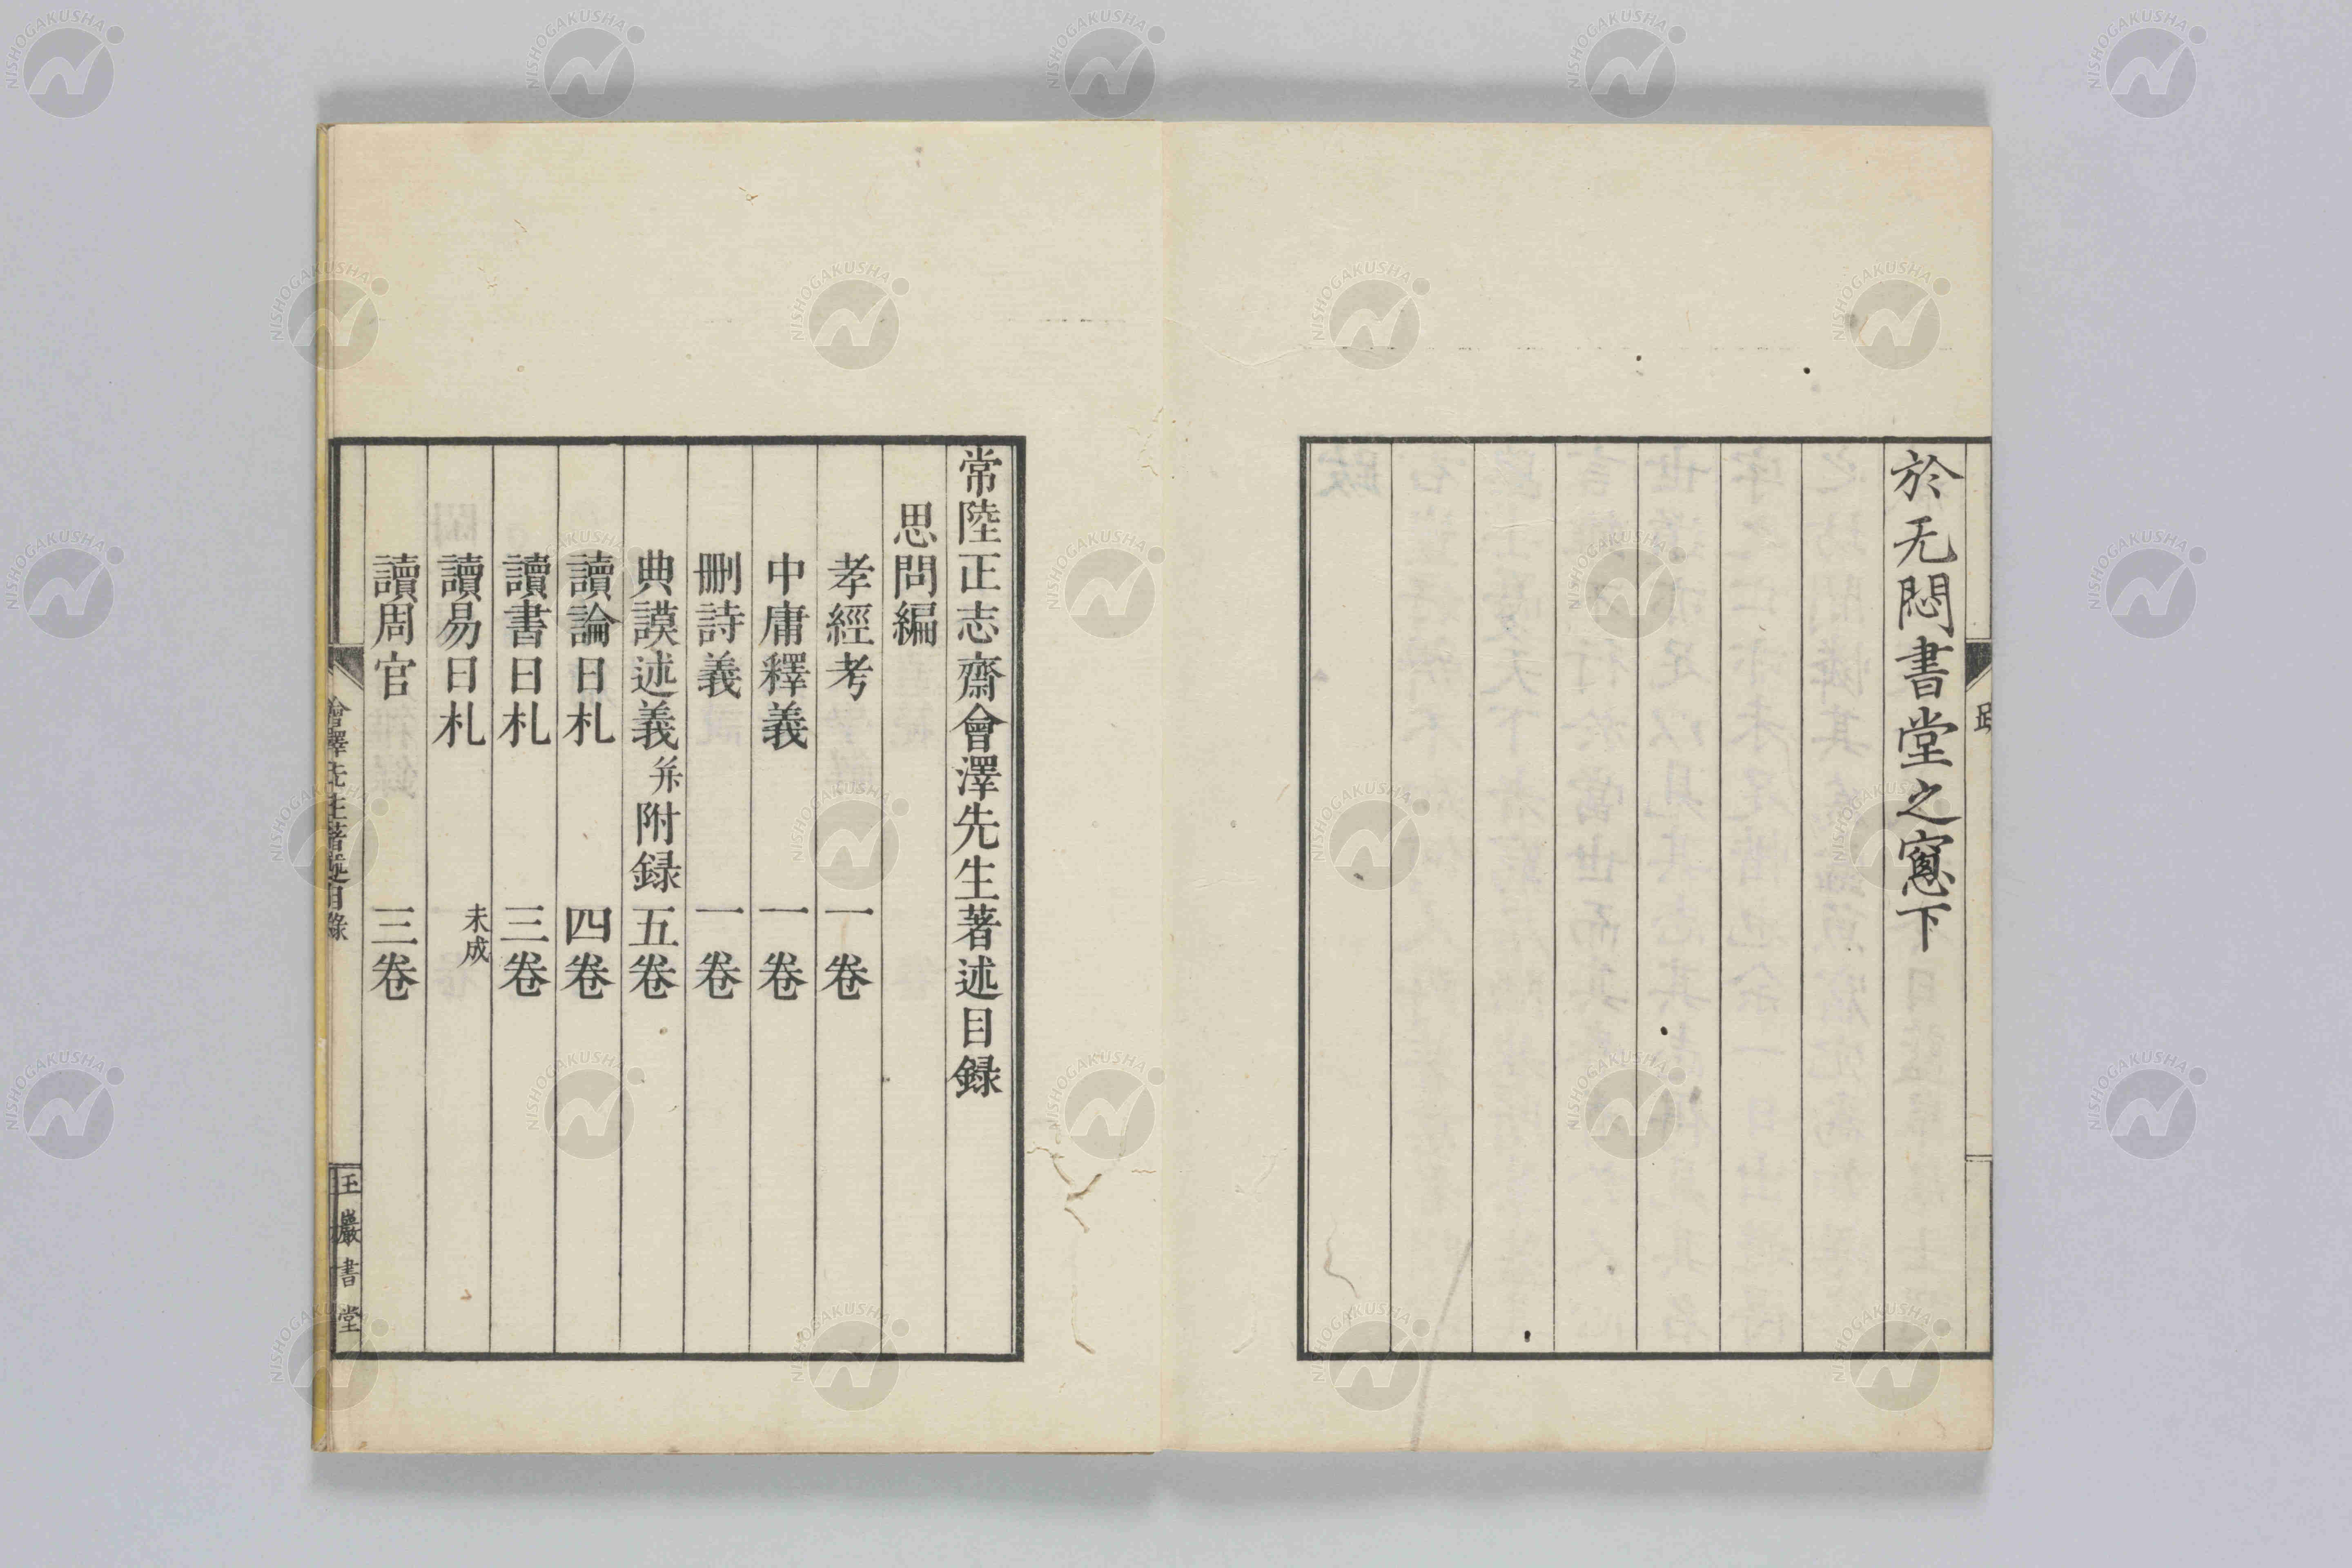 於无悶書堂之窻下
常陸正志齋會澤先生著述目録
思問編
孝經考 一卷
中庸釋義 一卷
刪詩義 一卷
典謨述義 并附録 五卷
讀論日札 四卷
讀書日札 三卷
讀易日札 未成
讀周官 三卷
會澤先生著述目錄
玉巖書堂
NISHOGAKUSHA